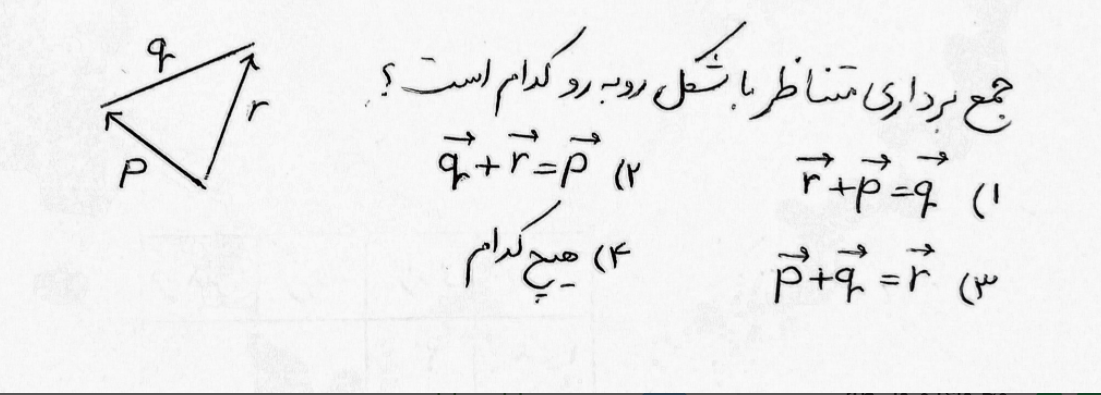 جمع برداری متناظر با شکل روبه رو کدام است؟
۱) r⃗ + p⃗ = q⃗
۲) q⃗ + r⃗ = p⃗
۳) p⃗ + q⃗ = r⃗
۴) هیچ کدام
q
r
p